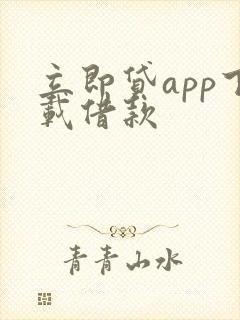 立即貸app下
載借款
青青山水